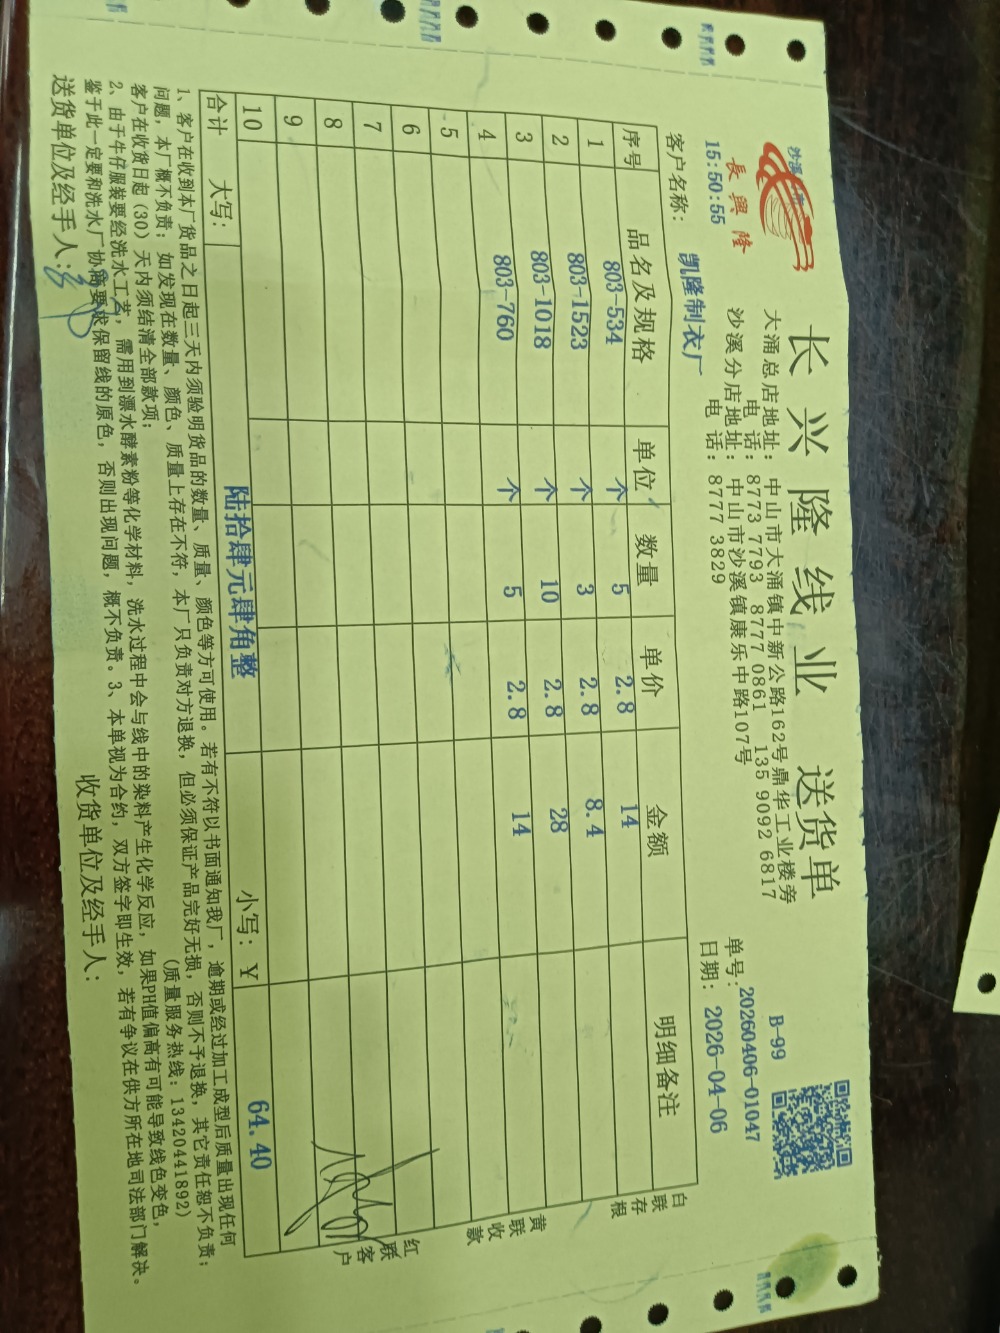 长兴隆线业 送货单
B-99
長興隆
大涌总店地址：中山市大涌镇中新公路162号鼎华工业楼旁
电 话：8773 7793 8777 0861 135 9092 6817
沙溪分店地址：中山市沙溪镇康乐中路107号
电 话：8777 3829
单号：20260406-01047
15:50:55
日期：2026-04-06
客户名称： 凯隆制衣厂
序号 品名及规格 单位 数量 单价 金额 明细备注
1 803-534 个 5 2.8 14
2 803-1523 个 3 2.8 8.4
3 803-1018 个 10 2.8 28
4 803-760 个 5 2.8 14
5
6
7
8
9
10
合计 大写： 陆拾肆元肆角整 小写：￥ 64.40
白联存根
黄联收款
红联客户
1、客户在收到本厂货品之日起三天内须验明货品的数量、质量、颜色等方可使用。若有不符以书面通知我厂，逾期或经过加工成型后质量出现任何
问题，本厂概不负责；如发现在数量、颜色、质量上存在不符，本厂只负责对方退换，但必须保证产品完好无损，否则不予退换，其它责任恕不负责；
客户在收货日起（30）天内须结清全部款项； (质量服务热线：13420441892)
2、由于牛仔服装要经洗水工艺，需用到漂水酵素粉等化学材料，洗水过程中会与线中的染料产生化学反应，如果PH值偏高有可能导致线色变色，
鉴于此一定要和洗水厂协商要求保留线的原色，否则出现问题，概不负责。3、本单视为合约，双方签字即生效，若有争议在供方所在地司法部门解决。
送货单位及经手人： 收货单位及经手人：